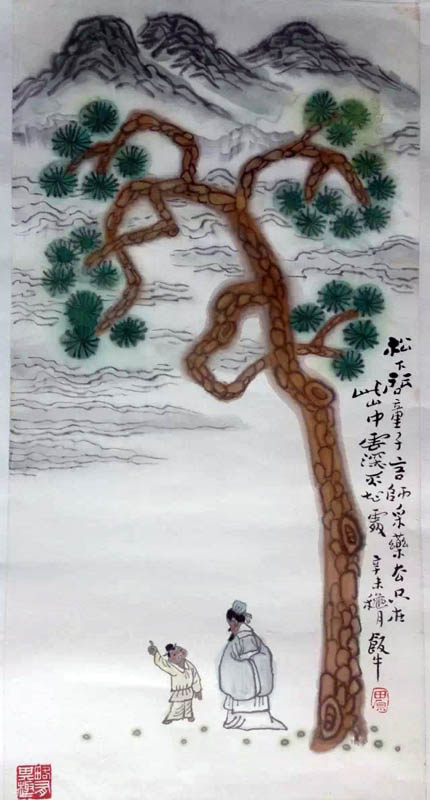 松下問童子言師采藥去只在
此山中雲深不知處 辛未穐月 飯牛